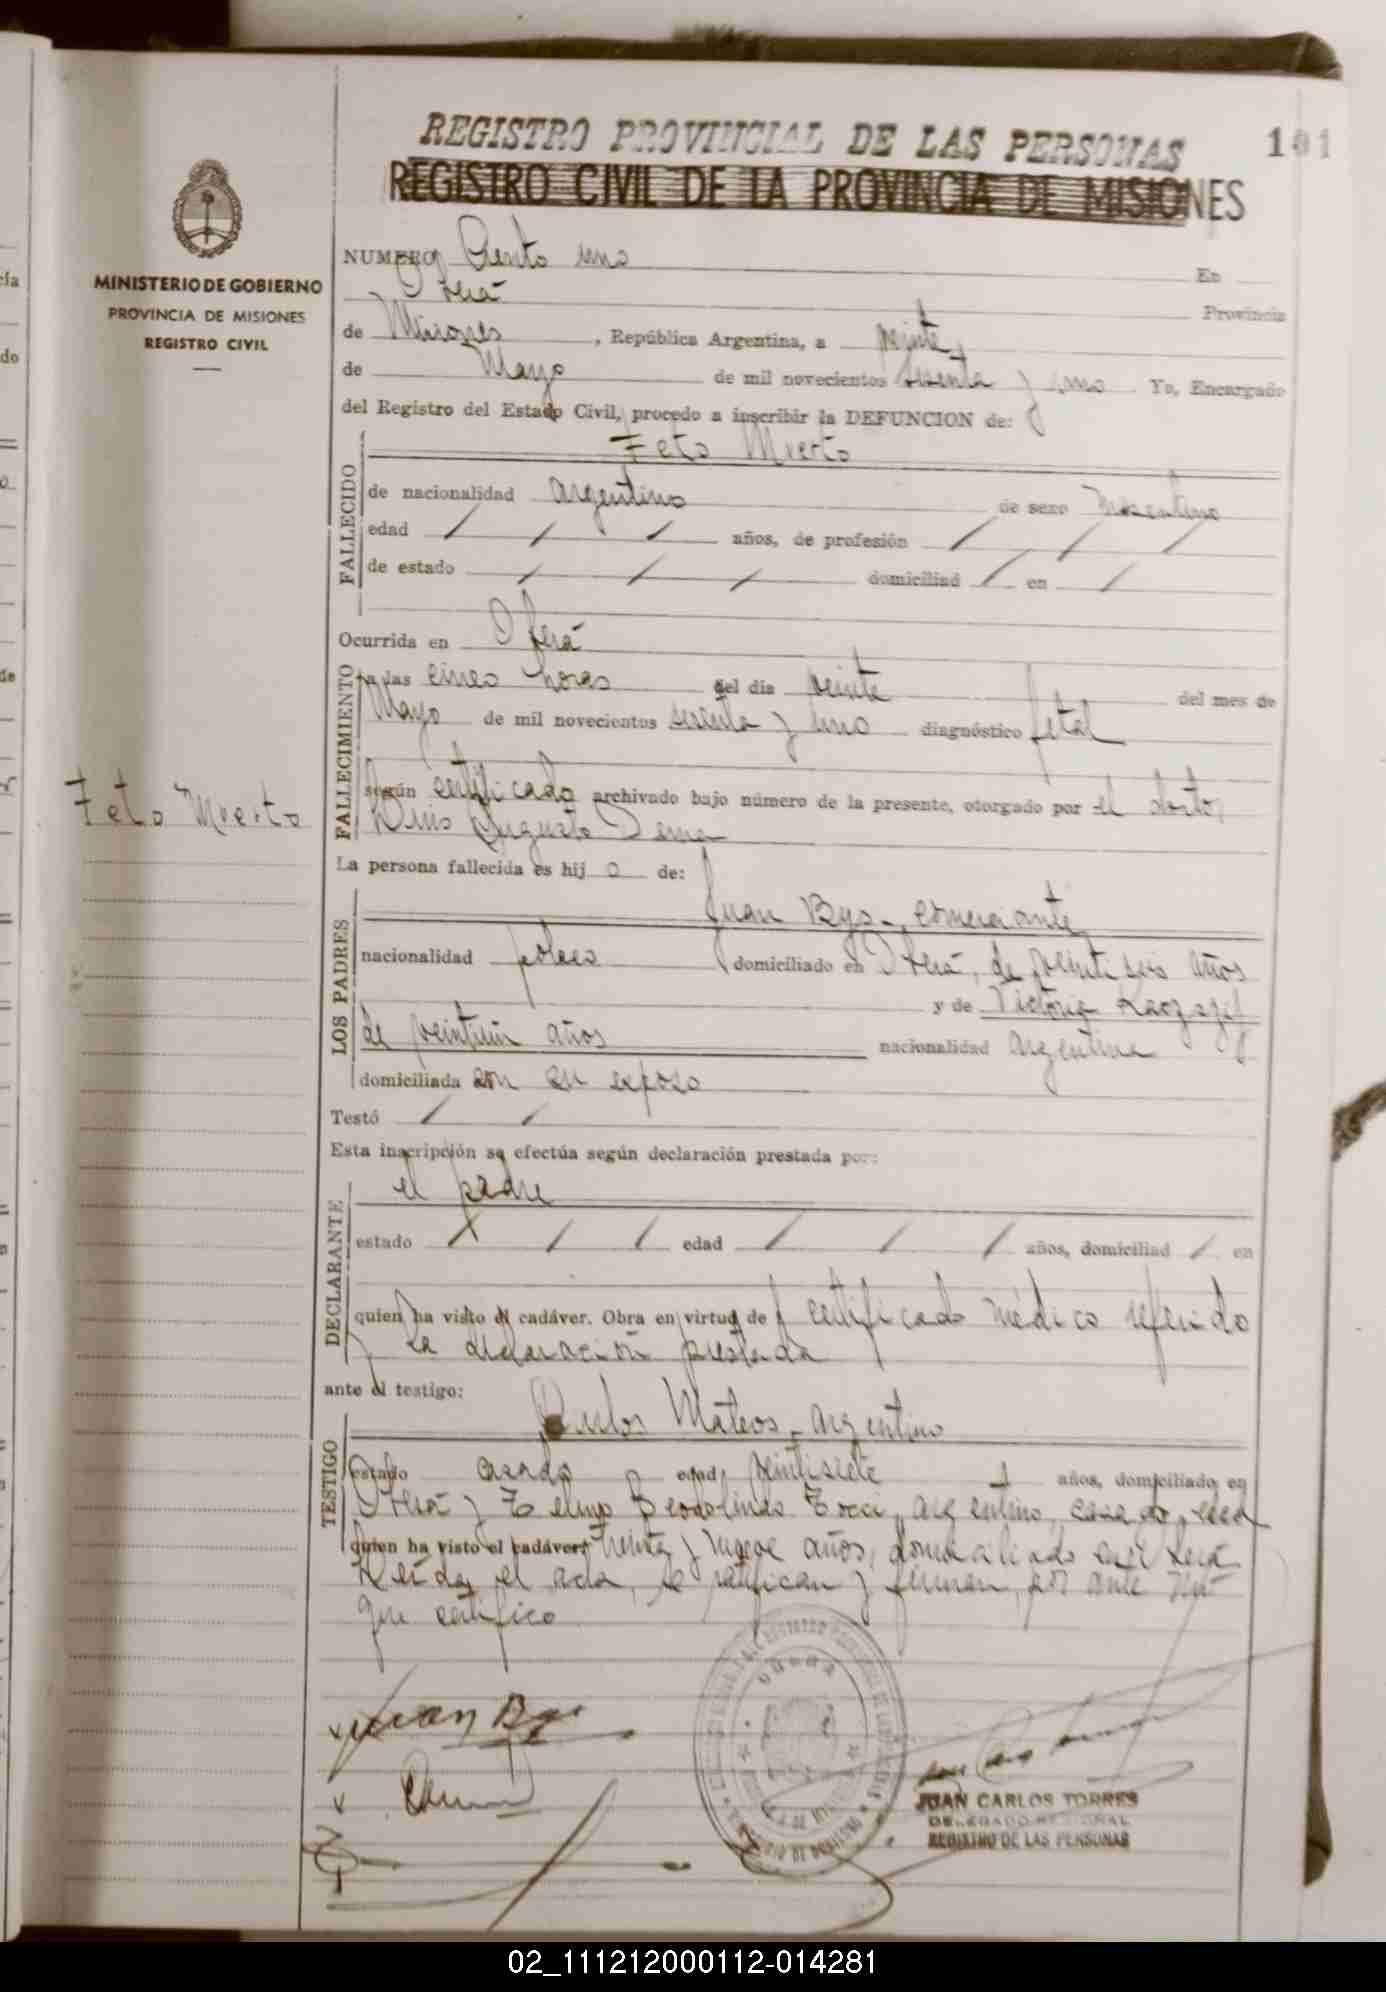 REGISTRO PROVINCIAL DE LAS PERSONAS
101
REGISTRO CIVIL DE LA PROVINCIA DE MISIONES
MINISTERIO DE GOBIERNO
PROVINCIA DE MISIONES
REGISTRO CIVIL
NUMERO Ciento uno En
Oberá Provincia
de Misiones, República Argentina, a veinte
de Mayo de mil novecientos sesenta y uno Yo, Encargado
del Registro del Estado Civil, procedo a inscribir la DEFUNCION de:
Feto Muerto
FALLECIDO
de nacionalidad argentino de sexo masculino
edad / / / años, de profesión / / /
de estado / / / domiciliad / en /
Ocurrida en Oberá
FALLECIMIENTO
a las cinco horas del día veinte del mes de
Mayo de mil novecientos sesenta y uno diagnóstico fetal
Feto Muerto
según certificado archivado bajo número de la presente, otorgado por el doctor
Luis Augusto
La persona fallecida es hijo de:
LOS PADRES
Juan Bys, comerciante,
nacionalidad polaco domiciliado en Oberá, de veintiseis años
y de Victoria
de veintiun años nacionalidad argentina
domiciliada con su esposo
Testó / /
Esta inscripción se efectúa según declaración prestada por:
el padre
DECLARANTE
estado / / / edad / / / años, domiciliad / en
quien ha visto el cadáver. Obra en virtud de certificado médico referido
y la declaración prestada
ante el testigo:
Carlos Mateos, argentino
TESTIGO
estado casado edad veintisiete años, domiciliado en
Oberá y Telmo Teodolindo Tocci, argentino, casado,
quien ha visto el cadáver treinta y nueve años, domiciliado en Oberá
Leída el acta, se ratifican y firman, por ante mí
que certifico
Juan Bys
JUAN CARLOS TORRES
DELEGADO REGIONAL
REGISTRO DE LAS PERSONAS
02_111212000112-014281